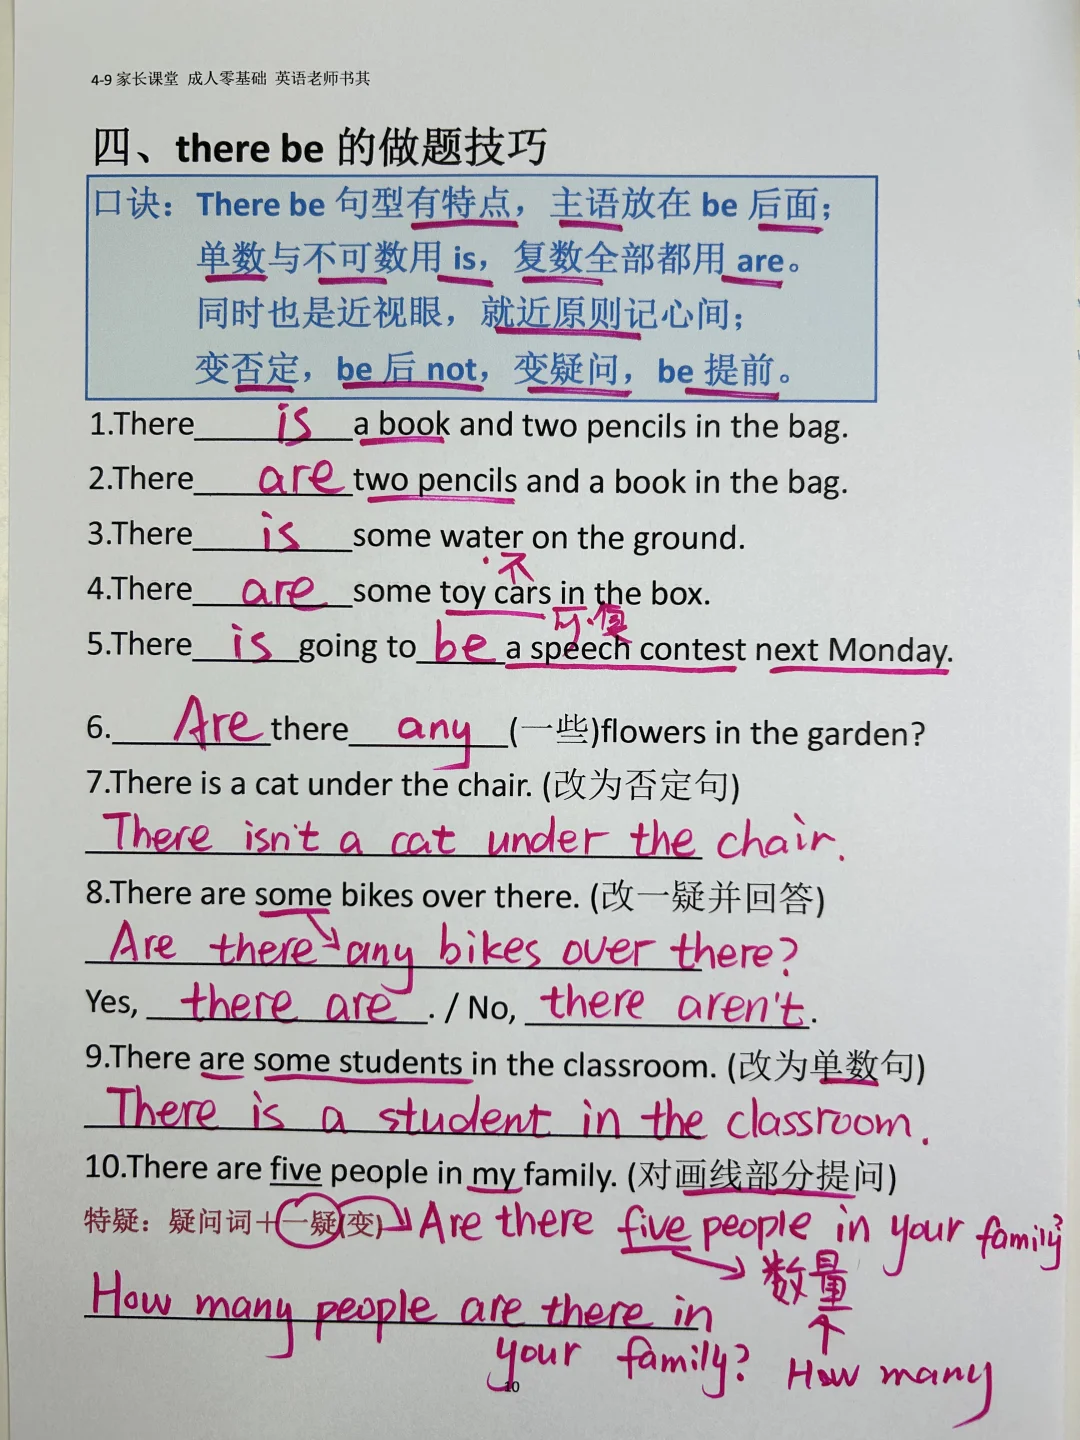 4-9 家长课堂 成人零基础 英语老师书其
四、there be 的做题技巧
口诀：There be 句型有特点，主语放在 be 后面；
单数与不可数用 is，复数全部都用 are。
同时也是近视眼，就近原则记心间；
变否定，be 后 not，变疑问，be 提前。
1.There is a book and two pencils in the bag.
2.There are two pencils and a book in the bag.
3.There is some water on the ground.
不
4.There are some toy cars in the box.
可·复
5.There is going to be a speech contest next Monday.
6. Are there any (一些)flowers in the garden?
7.There is a cat under the chair. (改为否定句)
There isn't a cat under the chair.
8.There are some bikes over there. (改一疑并回答)
Are there any bikes over there?
Yes, there are . / No, there aren't.
9.There are some students in the classroom. (改为单数句)
There is a student in the classroom.
10.There are five people in my family. (对画线部分提问)
特疑：疑问词＋一疑(变) Are there five people in your family?
数量
How many people are there in
your family? How many
10